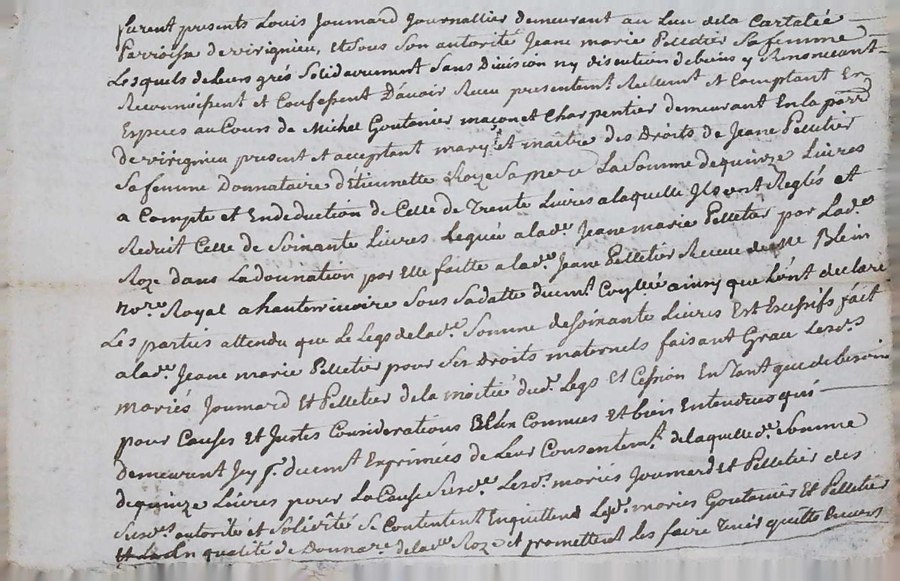 furent presents Louis Joumard Journallier demeurant au Lieu dela Cartalée
Parroisse de virignieu, Et sous son autorité Jeanne marie Pelletier sa femme
Lesquels de Leurs grés Solidairement Sans Division ny discution de biens y Renonceant
Reconnoissent et Confessent D'avoir Receu presentemt. Reellemt. et Comptant En
Especes au Cours de Michel Goutanier macon et Charpentier demeurant En la parr.
de virignieu present et acceptant mary et maitre des Droits de Jeane Pelletier
Sa femme Donnataire d'Etiennette Roze Sa mere La Somme de quinze Livres
a Compte et En deduction de Celle de Trente Livres a laquelle Ils ont Reglés et
Reduit Celle de Soixante Livres Leguée a lade. Jeane marie Pelletier par Lade.
Roze dans La donnation par Elle faitte a lade. Jeane Pelletier Receue de Me Blein
nore. Royal a hauterivoire Sous Sa datte duemt. ainsy que L'ont declaré
Les parties attendu que Le Legs de lade. Somme de Soixante Livres Est Excessifs fait
a lade. Jeane marie Pelletier pour Ses Droits maternels faisant Grace Lesds.
mariés Joumard Et Pelletier de la moitié dud. Legs Et Cession En Tant que de besoin
pour Causes Et Justes Considerations Connues Et bien Entendues qui
Demeurent Icy p. duemt. Exprimées de Leur Consentemt. de laquelle de. Somme
de quinze Livres pour La Cause Susde. Lesds. mariés Joumard Et Pelletier des
Susds. autorité et Solidité Se Contentent En quittent Lesds. mariés Goutanier Et Pelletier
qualité de Donnare. de lade. Roze et promettent Les faire Tenir quitte Envers